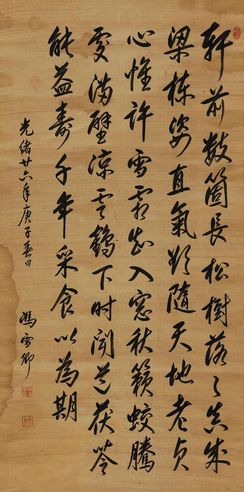 軒前數箇長松樹落〻真成
梁棟姿直氣欲隨天地老貞
心惟許雪霜知入窓秋籟蛟騰
處滿壁凉雲鶴下時聞道茯苓
能益壽千年采食以為期
光緒廿六年庚子春日
馮雪卿